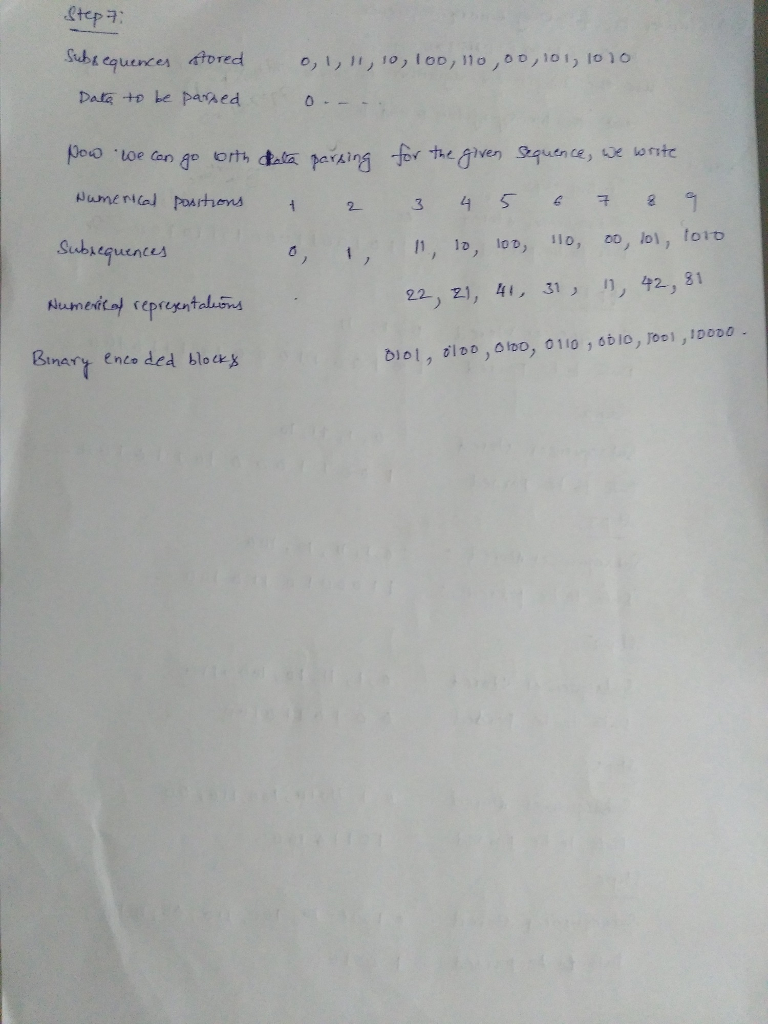 Step 7:
Subsequences stored 0, 1, 11, 10, 100, 110, 00, 101, 1010
Data to be parsed 0 - - -
Now we can go with data parsing for the given sequence, we write
Numerical positions 1 2 3 4 5 6 7 8 9
Subsequences 0, 1, 11, 10, 100, 110, 00, 101, 1010
Numerical representations 22, 21, 41, 31, 11, 42, 81
Binary encoded blocks 0101, 0100, 0100, 0110, 0010, 1001, 10000.